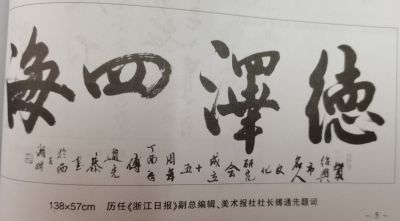 德澤四海
賀
紹興市
名人
文化
研究
會
成立
十五
周年
丁酉
傅
通先
恭書
於西
湖畔
138×57cm 历任《浙江日报》副总编辑、美术报社社长傅通先题词
- 5 -